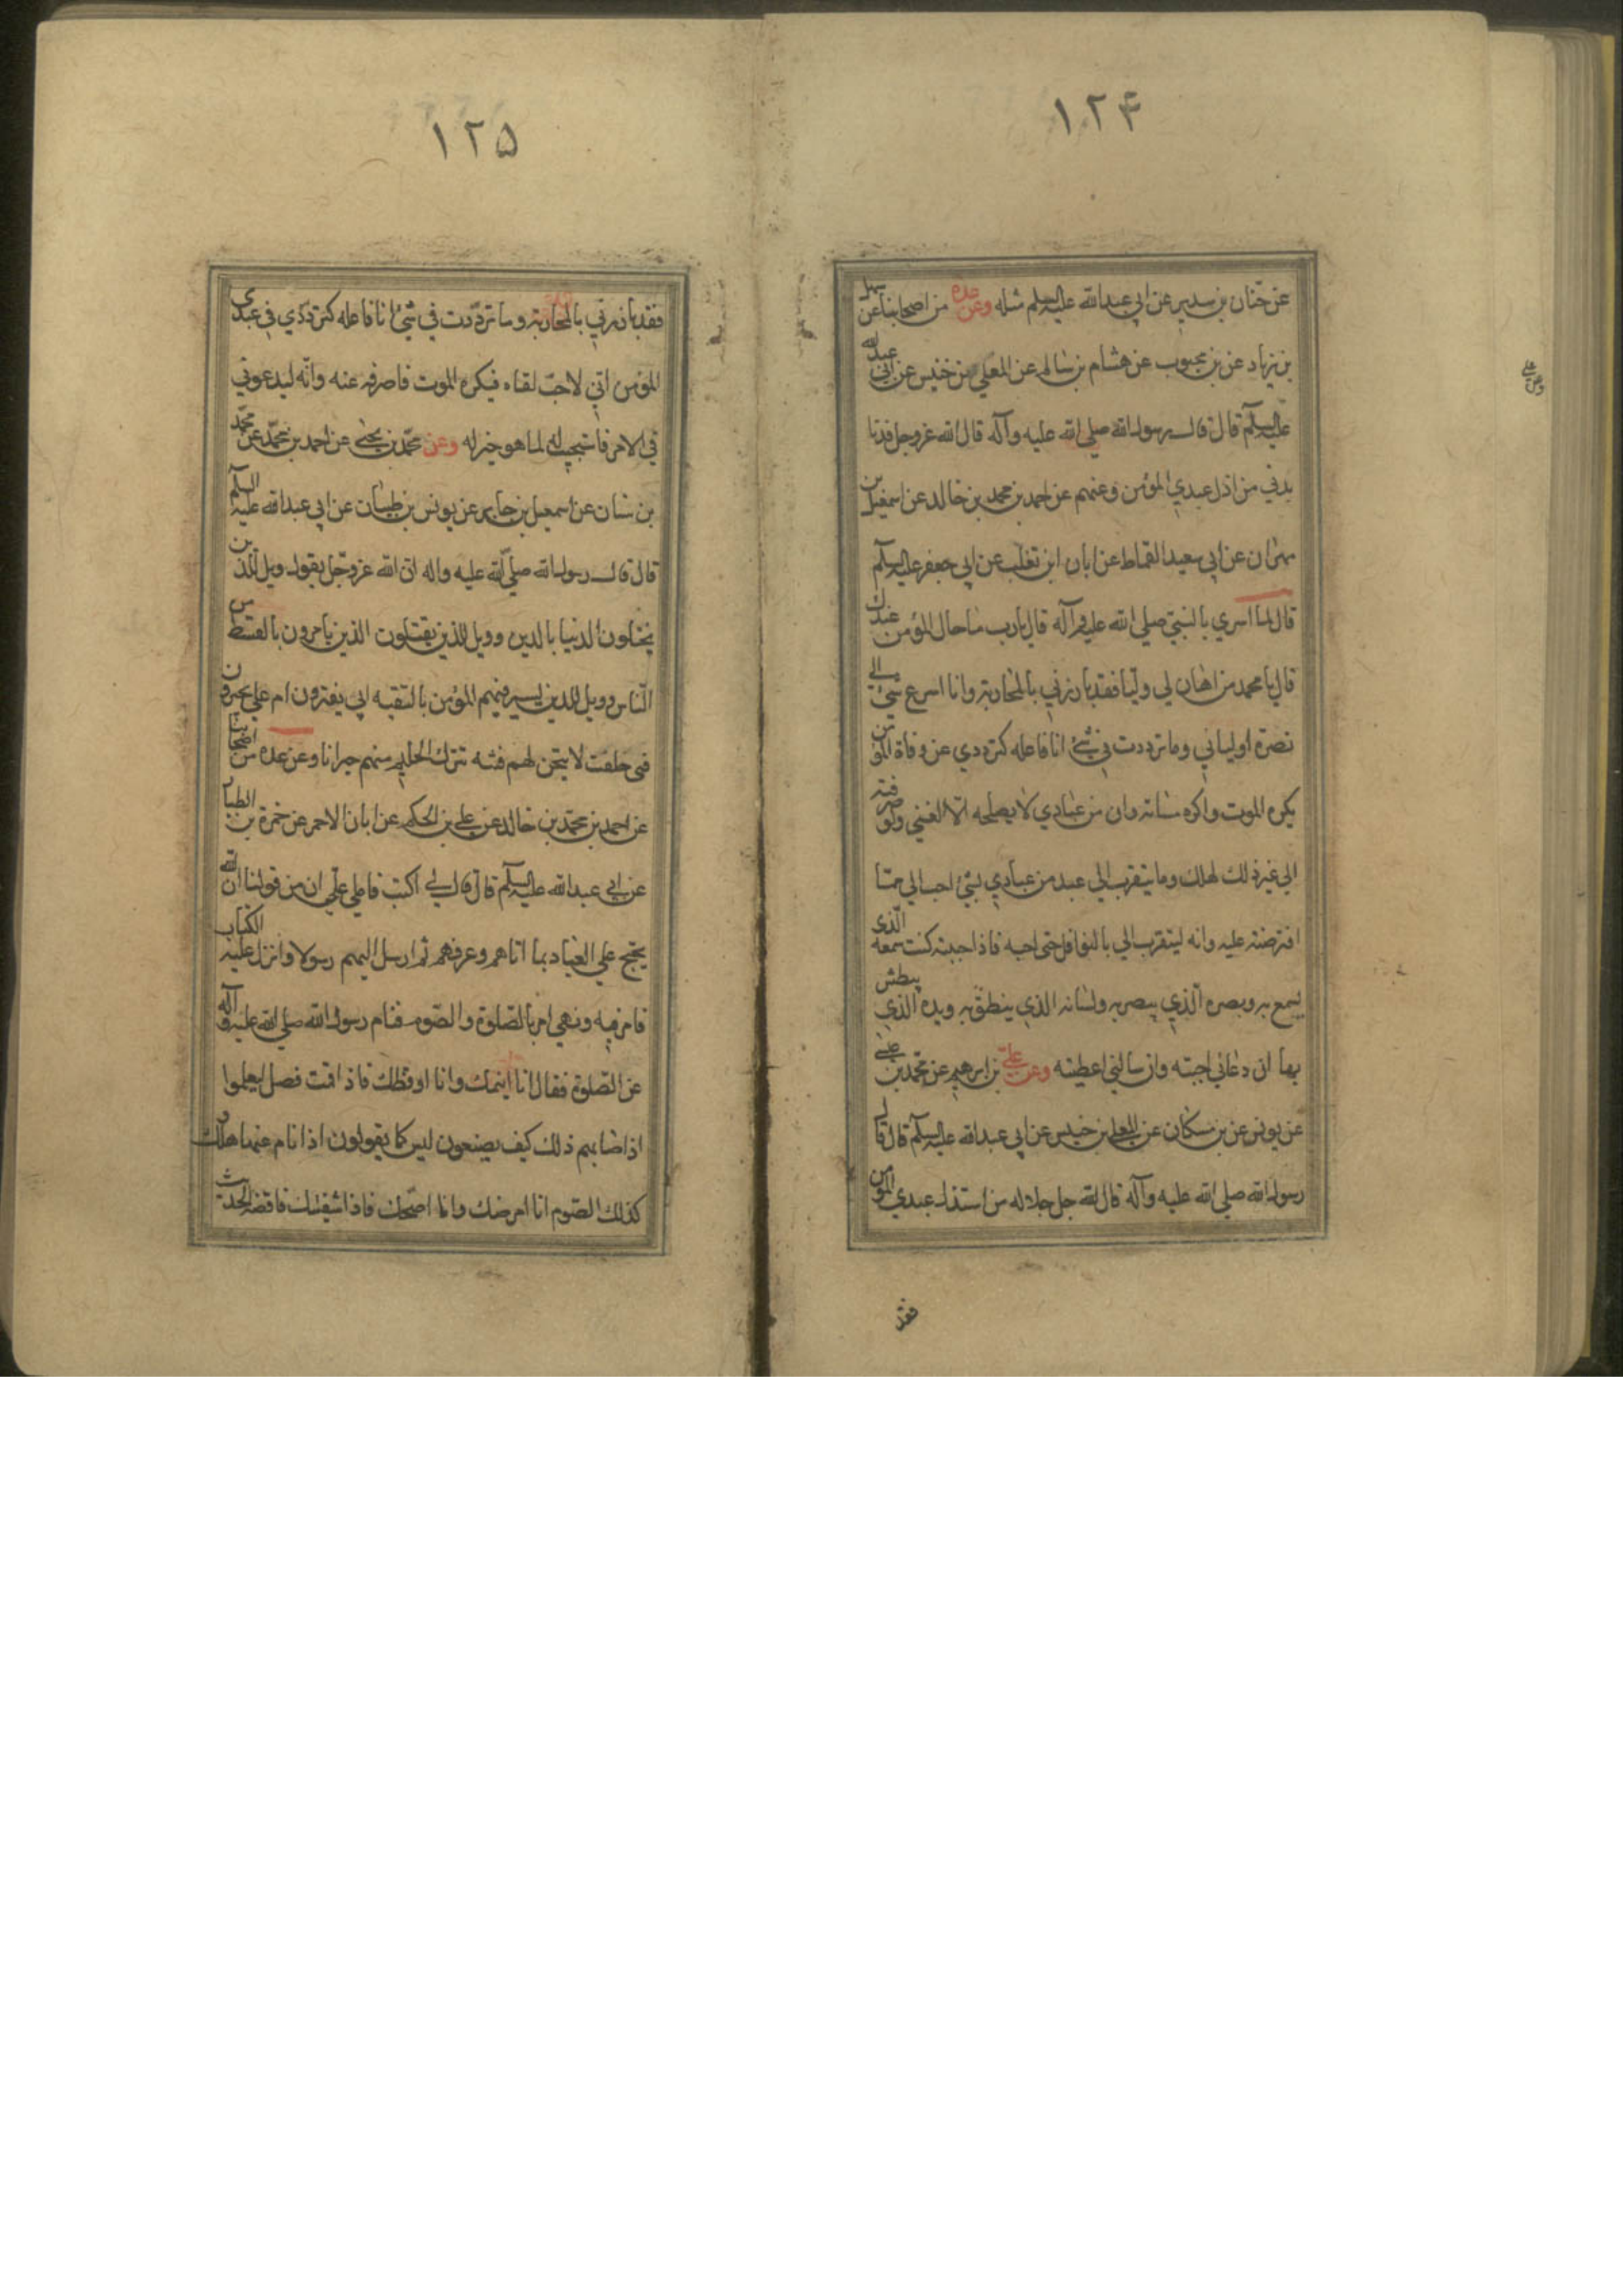 ١٢۴
عن حنان بن سدير عن ابي عبد الله عليه السلم مثله وعن عده من اصحابنا عن سهل
بن زياد عن بن محبوب عن هشام بن سالم عن المعلي بن خنيس عن ابي عبد الله
عليه السلم قال قال رسول الله صلي الله عليه وآله قال الله عز وجل قد نا
بذني من اذل عبدي المؤمن وعنهم عن احمد بن محمد بن خالد عن اسمعيل بن
مهران عن ابي سعيد القماط عن ابان ابن تغلب عن ابي جعفر عليه السلم
قال لما اسري بالنبي صلي الله عليه وآله قال يا رب ما حال المؤمن عندك
قال يا محمد من اهان لي وليا فقد بارزني بالمحاربة وانا اسرع شئ الي
نصرة اوليائي وما ترددت في شئ انا فاعله كترددي عن وفاة المؤمن
يكره الموت واكره مساته وان من عبادي لا يصلحه الا الغني ولو صرفته
الي غير ذلك لهلك وما يتقرب الي عبد من عبادي بشئ احب الي مما
افترضته عليه وانه ليتقرب الي بالنوافل حتى احبه فاذا احببته كنت سمعه الذي
يسمع به وبصره الذي يبصر به ولسانه الذي ينطق به ويده الذي يبطش
بها ان دعاني اجبته وان سالني اعطيته وعن علي بن ابرهيم عن محمد بن عيسي
عن يونس عن بن مسكان عن المعلي بن خنيس عن ابي عبد الله عليه السلم قال قال
رسول الله صلي الله عليه وآله قال الله جل جلاله من استذل عبدي المؤمن
فقد
١٢۵
فقد بارزني بالمحاربة وما ترددت في شئ انا فاعله كترددي في عبدي
المؤمن اني لاحب لقاه فيكره الموت فاصرفه عنه وانه ليدعوني
في الامر فاستجيب له لما هو خير له وعن محمد بن يحيي عن احمد بن محمد عن محمد
بن سنان عن اسمعيل بن جابر عن يونس بن ظبيان عن ابي عبد الله عليه السلم
قال قال رسول الله صلي الله عليه واله ان الله عز وجل يقول ويل للذين
يختلون الدنيا بالدين وويل للذين يقتلون الذين يامرون بالقسط من
الناس وويل للذين يسير فيهم المؤمن بالتقيه ابي يغترون ام علي يجترون
فبي حلفت لا تيحن لهم فتنه تترك الحليم منهم حيرانا وعن عده من اصحابنا
عن احمد بن محمد بن خالد عن علي بن الحكم عن ابان الاحمر عن حمزة بن الطيار
عن ابي عبد الله عليه السلم قال قال لي اكتب فاملي علي ان من قولنا ان الله
يحتج علي العباد بما اتاهم وعرفهم ثم ارسل اليهم رسولا وانزل عليه الكتاب
فامر فيه ونهي امر بالصلوة والصوم فنام رسول الله صلي الله عليه وآله
عن الصلوة فقال انا انيمك وانا اوقظك فاذا قمت فصل ليعلموا
اذا اصابهم ذلك كيف يصنعون ليس كما يقولون اذا نام عنها هلك و
كذلك الصوم انا امرضك وانا اصحك فاذا شفيتك فاقضه الحديث